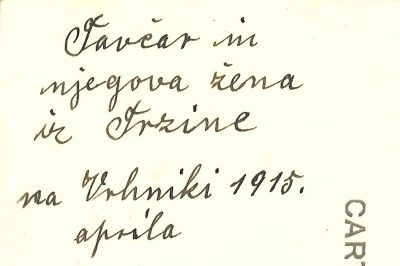 Tavčar in
njegova žena
iz Trzine
na Vrhniki 1915.
aprila
CART